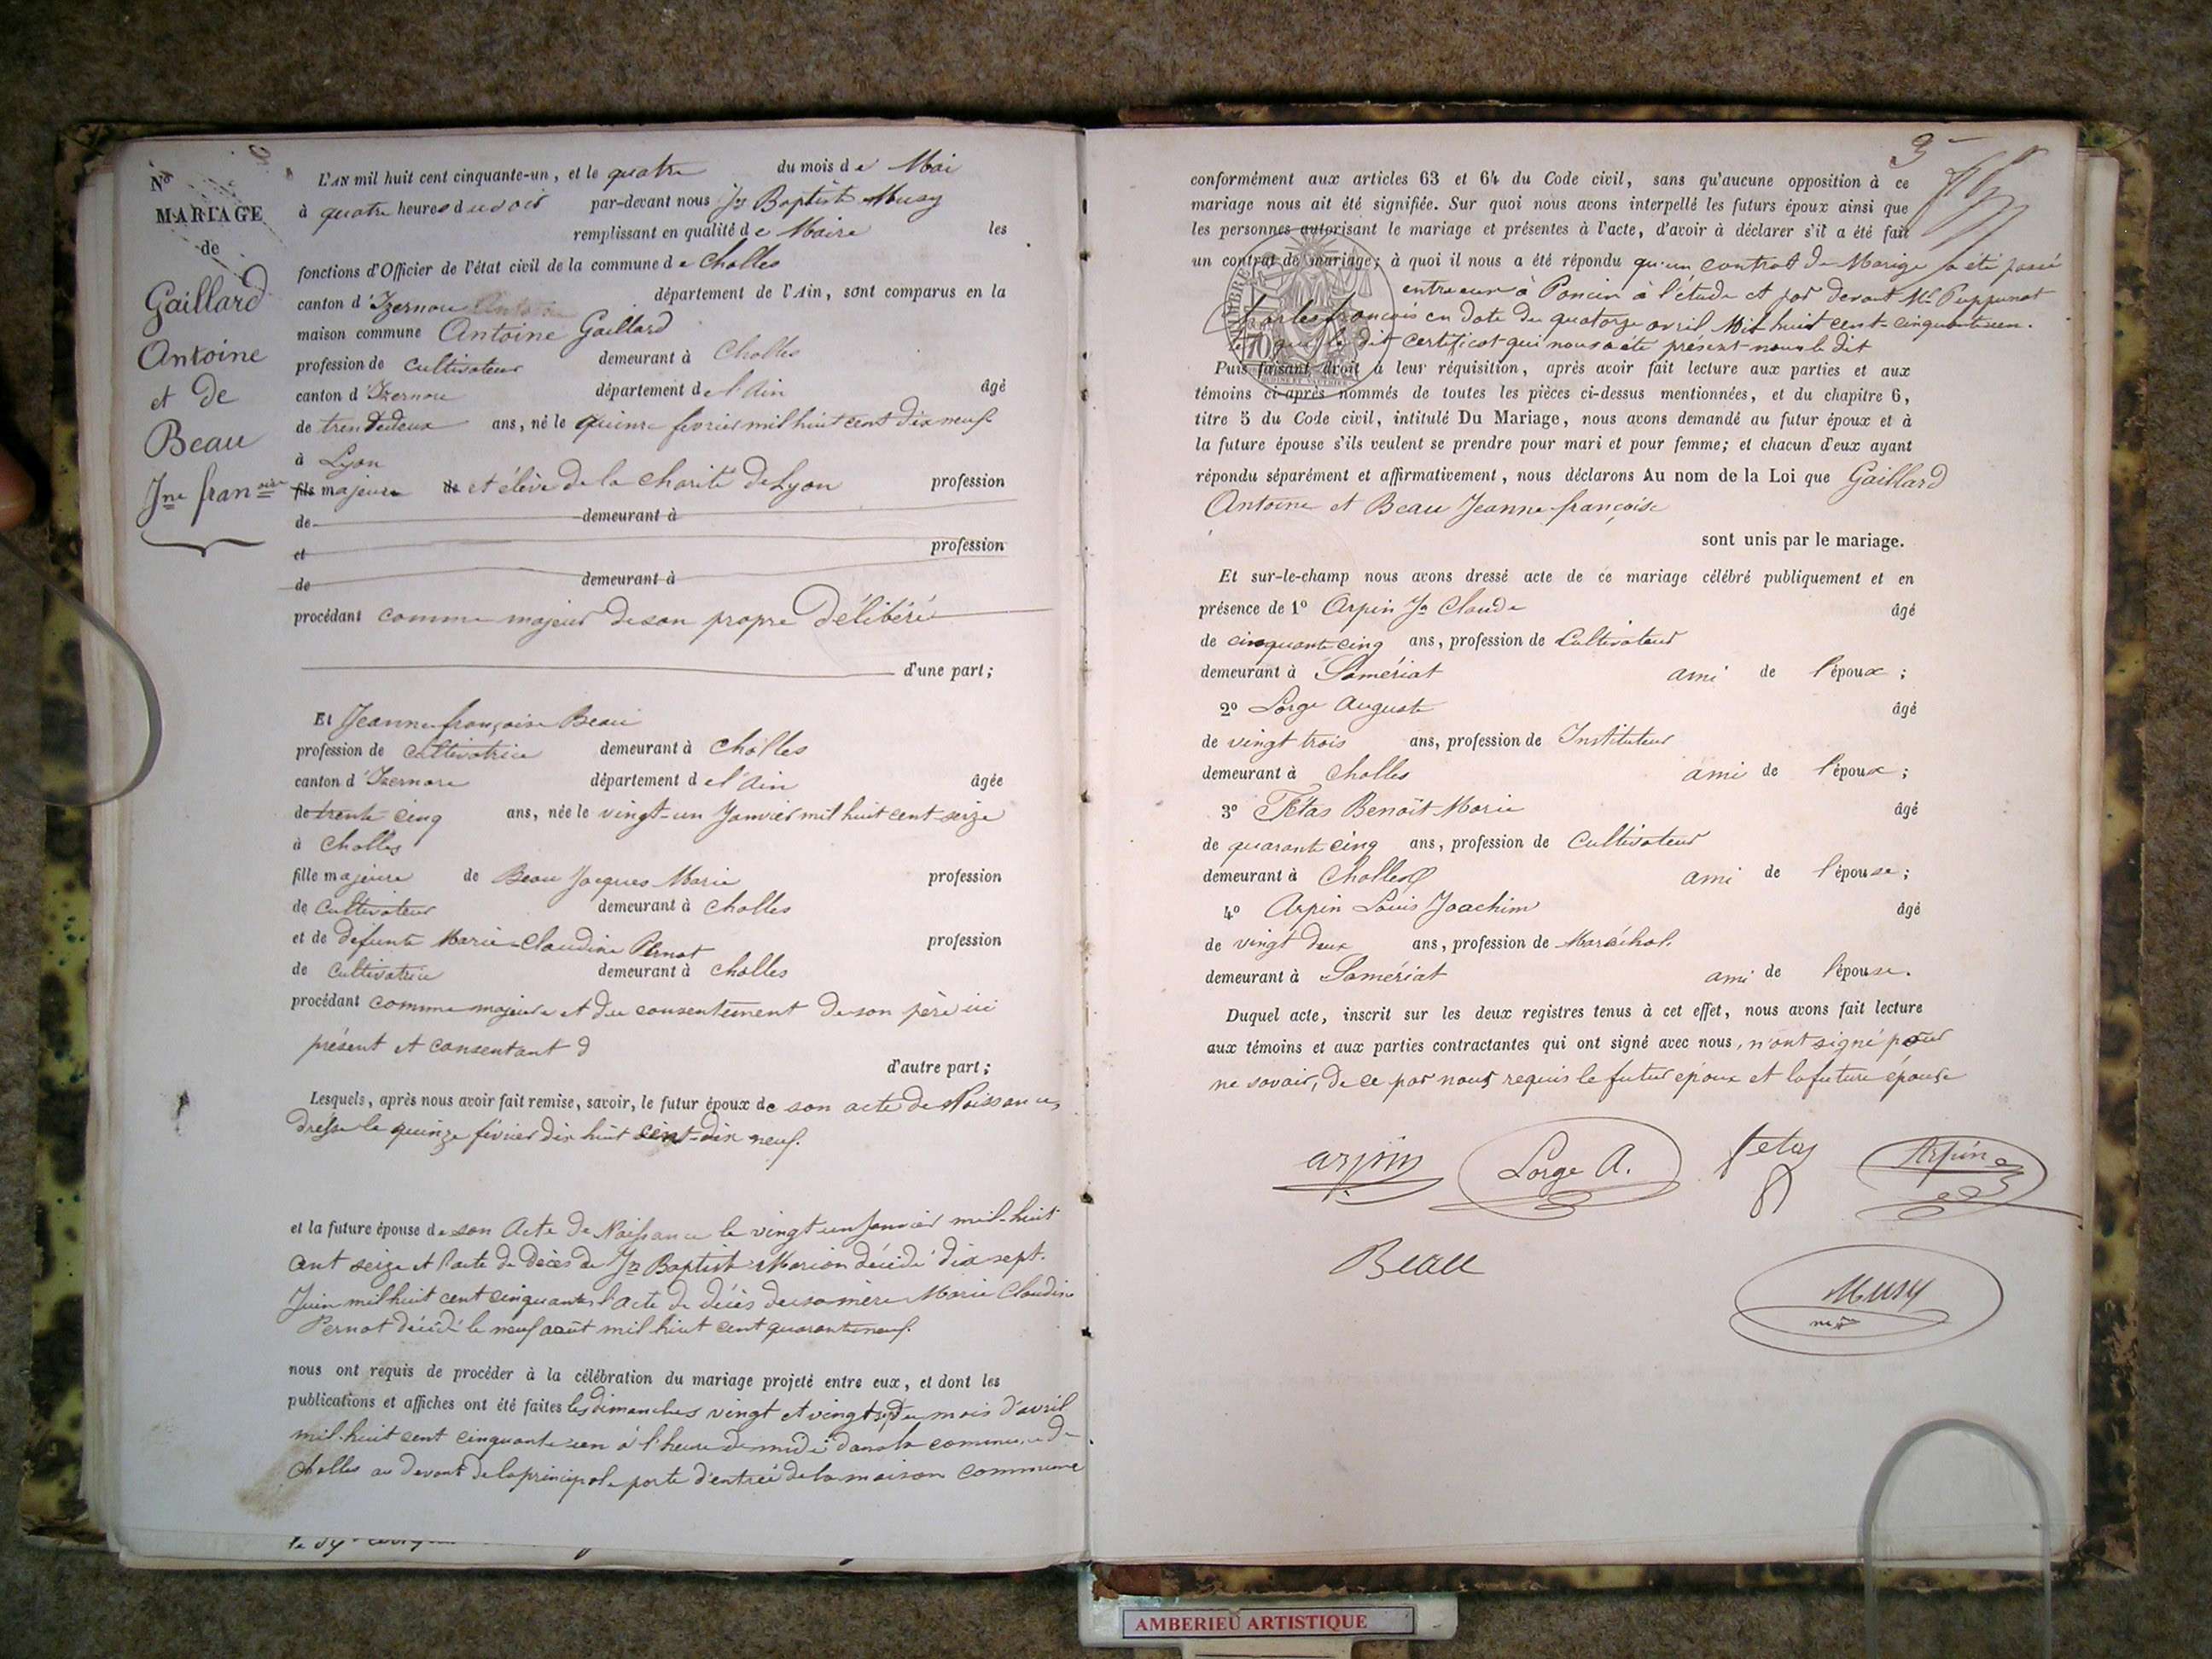 No
MARIAGE
de
Gaillard
Antoine
et de
Beau
Jne franoise
L'AN mil huit cent cinquante-un, et le quatre du mois de Mai
à quatre heures du soir par-devant nous Jn Baptiste Musy
remplissant en qualité de Maire les
fonctions d'Officier de l'état civil de la commune de Challes
canton d'Izernore département de l'Ain, sont comparus en la
maison commune Antoine Gaillard
profession de cultivateur demeurant à Challes
canton d'Izernore département de l'Ain âgé
de trentedeux ans, né le quinze fevrier mil huit cent dix neuf
à Lyon
fils majeure de et élève de la charité de Lyon profession
de demeurant à
et profession
de demeurant à
procédant comme majeur de son propre Délibéré
d'une part;
Et Jeanne françoise Beau
profession de cultivatrice demeurant à Challes
canton d'Izernore département de l'Ain âgée
de trente cinq ans, née le vingt-un Janvier mil huit cent seize
à Challes
fille majeure de Beau Jacques Marie profession
de Cultivateur demeurant à Challes
et de défunte Marie-Claudine Pernot profession
de Cultivatrice demeurant à Challes
procédant comme majeure et du consentement de son père ici
présent et consentant
d'autre part;
Lesquels, après nous avoir fait remise, savoir, le futur époux de son acte de Naissance,
dressé le quinze février dix huit cent-dix neuf.
et la future épouse de son Acte de Naissance le vingt un Janvier mil-huit
cent seize et l'acte de décès de Jn Baptiste Marion décédé dix sept.
Juin mil huit cent cinquante, l'acte de décès de sa mère Marie Claudine
Pernot décédé le neuf août mil huit cent quarante neuf.
nous ont requis de procéder à la célébration du mariage projeté entre eux, et dont les
publications et affiches ont été faites les dimanches vingt et vingt sept du mois d'avril
mil-huit cent cinquante un à l'heure de midi dans la commune de
Challes au devant de la principale porte d'entrée de la maison commune
3
conformément aux articles 63 et 64 du Code civil, sans qu'aucune opposition à ce
mariage nous ait été signifiée. Sur quoi nous avons interpellé les futurs époux ainsi que
les personnes autorisant le mariage et présentes à l'acte, d'avoir à déclarer s'il a été fait
un contrat de mariage; à quoi il nous a été répondu qu'un contrat de Marige a été passé
entre eux à Poncin à l'étude et par devant Me
françois en date du quatorze avril Mil huit cent-cinquante un.
dit certificat qui nous a été présent nous le dit
Puis faisant droit à leur réquisition, après avoir fait lecture aux parties et aux
témoins ci-après nommés de toutes les pièces ci-dessus mentionnées, et du chapitre 6,
titre 5 du Code civil, intitulé Du Mariage, nous avons demandé au futur époux et à
la future épouse s'ils veulent se prendre pour mari et pour femme; et chacun d'eux ayant
répondu séparément et affirmativement, nous déclarons Au nom de la Loi que Gaillard
Antoine et Beau Jeanne françoise
sont unis par le mariage.
Et sur-le-champ nous avons dressé acte de ce mariage célébré publiquement et en
présence de 1o Arpin Jn Claude âgé
de cinquante cinq ans, profession de Cultivateur
demeurant à Samériat ami de l'époux;
2o Lorge Auguste âgé
de vingt trois ans, profession de Instituteur
demeurant à Challes ami de l'époux;
3o Fétas Benoît Marie âgé
de quarante cinq ans, profession de Cultivateur
demeurant à Challes ami de l'épouse;
4o Arpin Louis Joachim âgé
de vingt deux ans, profession de Maréchal.
demeurant à Samériat ami de l'épouse.
Duquel acte, inscrit sur les deux registres tenus à cet effet, nous avons fait lecture
aux témoins et aux parties contractantes qui ont signé avec nous, n'ont signé pour
ne savoir, de ce par nous requis le futur époux et la future épouse
arpin Lorge A. fetas Arpin
Beau
Musy
AMBERIEU ARTISTIQUE